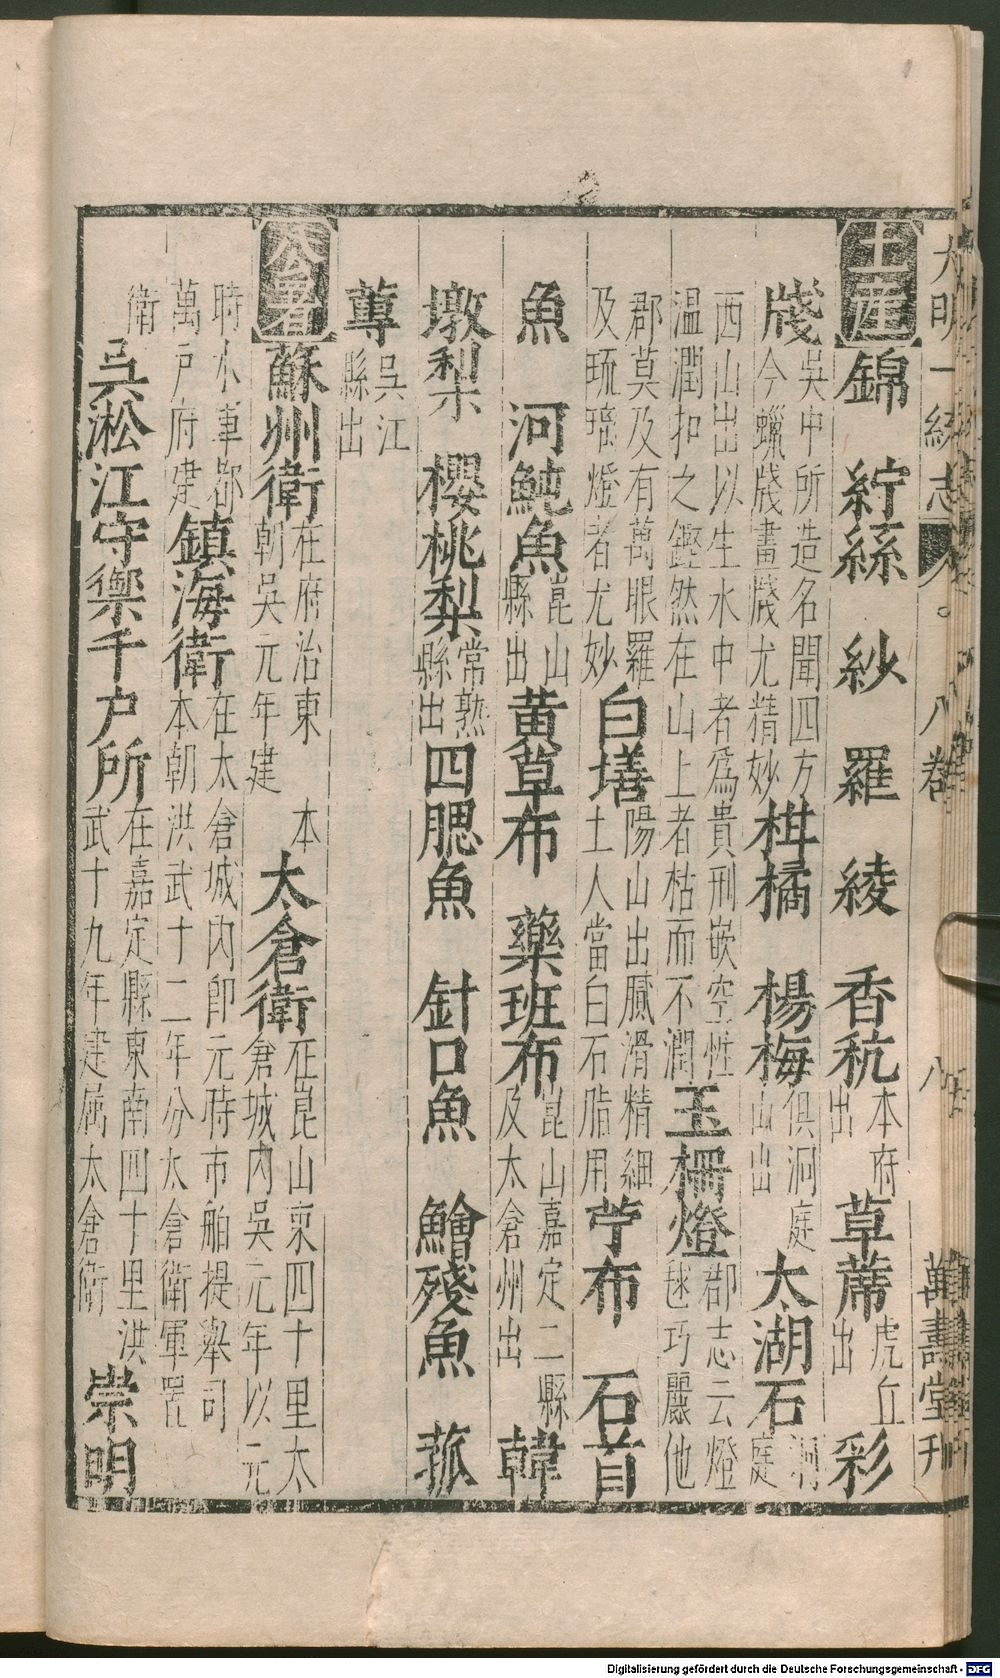 大明一統志 八卷 八 萬壽堂刊
土產 錦 紵絲 紗 羅 綾 香秔 本府出 草蓆 虎丘出 彩
牋 吳中所造名聞四方今蠟牋畫牋尤精妙 柑橘 楊梅 俱洞庭山出 太湖石 洞庭
西山出以生水中者爲貴形嵌空性温潤扣之鏗然在山上者枯而不潤 玉柵燈 郡志云燈毬巧麗他
郡莫及有萬眼羅及琉璃燈者尤妙 白墡 陽山出膩滑精細土人當白石脂用 苧布 石首
魚 河魨魚 崑山縣出 黄草布 藥班布 崑山嘉定二縣及太倉州出 韓
墩梨 櫻桃梨 常熟縣出 四腮魚 針口魚 鱠殘魚 菰
蓴 吳江縣出
公署 蘇州衛 在府治東本朝吳元年建 太倉衛 在崑山東四十里太倉城内吳元年以元
時水軍都萬户府建 鎮海衛 在太倉城内即元時市舶提舉司本朝洪武十二年分太倉衛軍置
衛 吳淞江守禦千户所 在嘉定縣東南四十里洪武十九年建属太倉衛 崇明
Digitalisierung gefördert durch die Deutsche Forschungsgemeinschaft - DFG